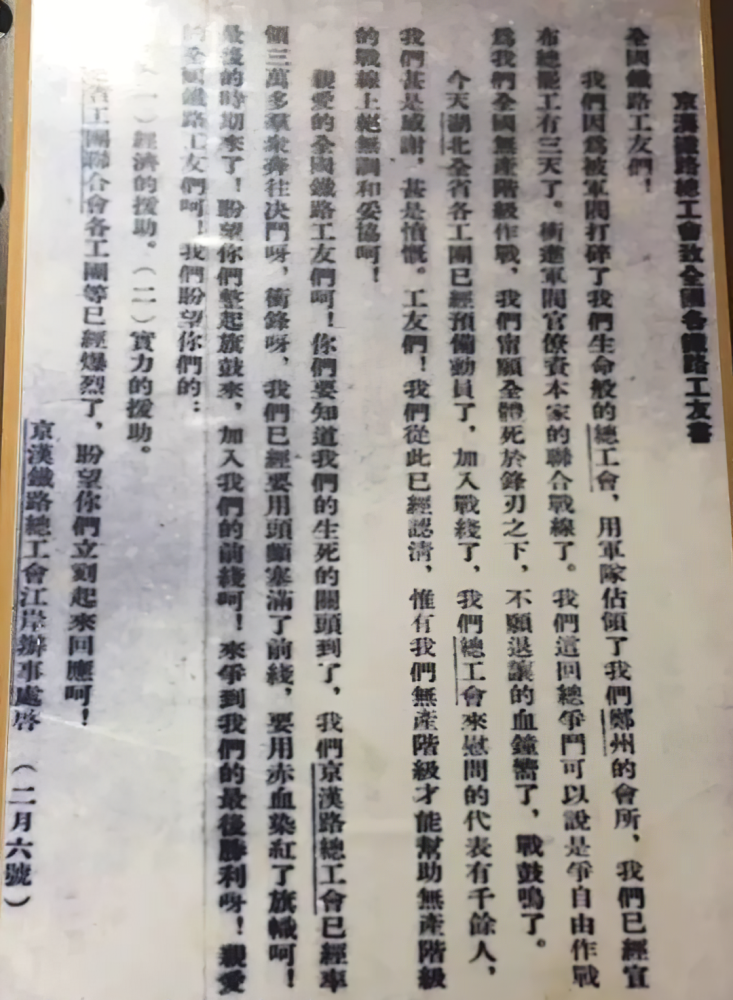 京漢鐵路總工會致全國各鐵路工友書
全國鐵路工友們！
我們因爲被軍閥打碎了我們生命般的總工會，用軍隊佔領了我們鄭州的會所，我們已經宣
布總罷工有三天了。衝進軍閥官僚資本家的聯合戰線了。我們這回總爭鬥可以說是爭自由作戰
爲我們全國無產階級作戰，我們甯願全體死於鋒刃之下，不願退讓的血鐘響了，戰鼓鳴了。
今天湖北全省各工團已經預備動員了，加入戰綫了，我們總工會來慰問的代表有千餘人，
我們甚是感謝，甚是憤慨。工友們！我們從此已經認清，惟有我們無產階級才能幫助無產階級
的戰線上絕無調和妥協呵！
親愛的全國鐵路工友們呵！你們要知道我們的生死的關頭到了，我們京漢路總工會已經率
領三萬多羣衆奔往決鬥呀，衝鋒呀，我們已經要用頭顱塞滿了前綫，要用赤血染紅了旗幟呵！
最後的時期來了！盼望你們擊起旗鼓來，加入我們的前綫呵！來爭到我們的最後勝利呀！親愛
的全國鐵路工友們呵！我們盼望你們的：
（一）經濟的援助。（二）實力的援助。
省工團聯合會各工團等已經爆烈了，盼望你們立刻起來回應呵！
京漢鐵路總工會江岸辦事處啓 （二月六號）